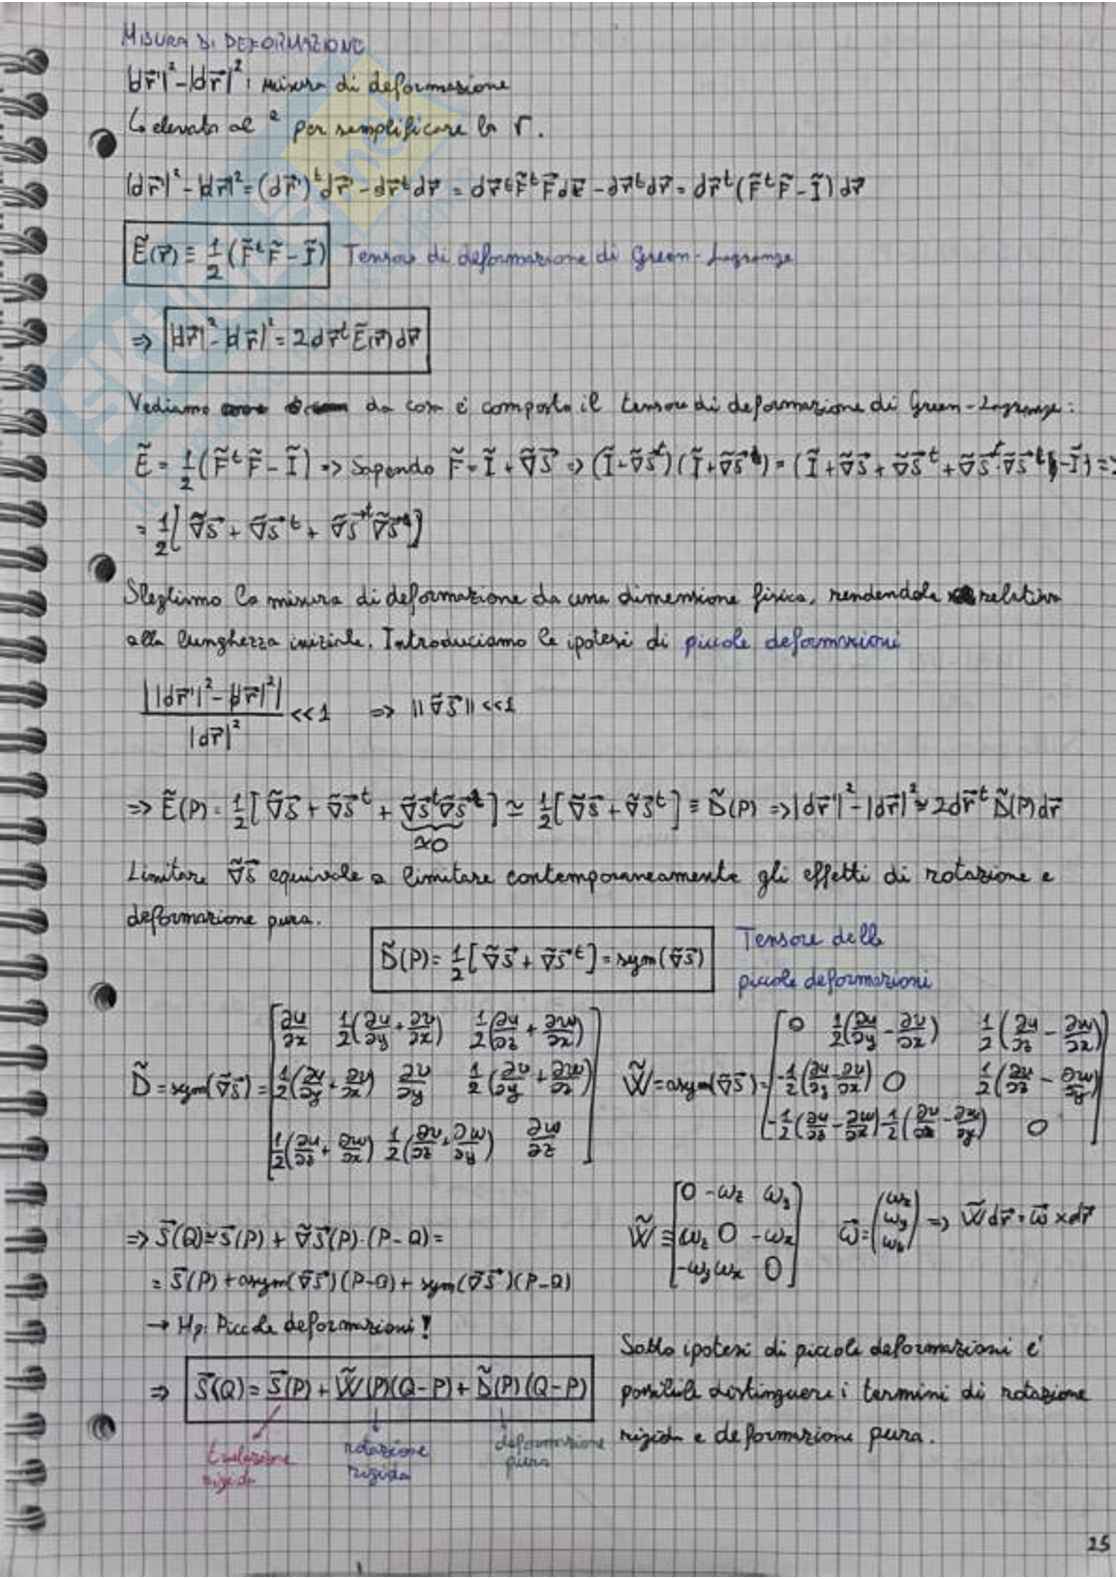 MISURA DI DEFORMAZIONE
|dr⃗'|² - |dr⃗|² : misura di deformazione
↳ elevato al ² per semplificare la √.
|dr⃗'|² - |dr⃗|² = (dr⃗')ᵗ dr⃗' - dr⃗ᵗ dr⃗ = dr⃗ᵗ F̃ᵗ F̃ dr⃗ - dr⃗ᵗ dr⃗ = dr⃗ᵗ (F̃ᵗ F̃ - Ĩ) dr⃗
Ẽ(r⃗) ≡ 1/2 (F̃ᵗ F̃ - Ĩ) Tensore di deformazione di Green-Lagrange
⇒ |dr⃗'|² - |dr⃗|² = 2 dr⃗ᵗ Ẽ(r⃗) dr⃗
Vediamo da cosa è composto il tensore di deformazione di Green-Lagrange:
Ẽ = 1/2 (F̃ᵗ F̃ - Ĩ) => Sapendo F̃ = Ĩ + ∇̃s⃗ => (Ĩ + ∇̃s⃗ᵗ)(Ĩ + ∇̃s⃗) = (Ĩ + ∇̃s⃗ + ∇̃s⃗ᵗ + ∇̃s⃗ᵗ·∇̃s⃗ - Ĩ) =>
= 1/2 [∇̃s⃗ + ∇̃s⃗ᵗ + ∇̃s⃗ᵗ ∇̃s⃗]
Sleghiamo la misura di deformazione da una dimensione fisica, rendendola relativa
alla lunghezza iniziale. Introduciamo le ipotesi di piccole deformazioni
| |dr⃗'|² - |dr⃗|² | / |dr⃗|² << 1 => ||∇̃s⃗|| << 1
=> Ẽ(P) = 1/2 [∇̃s⃗ + ∇̃s⃗ᵗ + ∇̃s⃗ᵗ ∇̃s⃗] ≃ 1/2 [∇̃s⃗ + ∇̃s⃗ᵗ] ≡ D̃(P) => |dr⃗'|² - |dr⃗|² ≃ 2dr⃗ᵗ D̃(P) dr⃗
≈0
Limitare ∇̃s⃗ equivale a limitare contemporaneamente gli effetti di rotazione e
deformazione pura.
D̃(P) = 1/2 [∇̃s⃗ + ∇̃s⃗ᵗ] = sym(∇̃s⃗) Tensore delle
piccole deformazioni
D̃ = sym(∇̃s⃗) = [∂u/∂x 1/2(∂u/∂y + ∂v/∂x) 1/2(∂u/∂z + ∂w/∂x)
1/2(∂u/∂y + ∂v/∂x) ∂v/∂y 1/2(∂v/∂z + ∂w/∂y)
1/2(∂u/∂z + ∂w/∂x) 1/2(∂v/∂z + ∂w/∂y) ∂w/∂z]
W̃ = asym(∇̃s⃗) = [0 1/2(∂u/∂y - ∂v/∂x) 1/2(∂u/∂z - ∂w/∂x)
-1/2(∂u/∂y - ∂v/∂x) 0 1/2(∂v/∂z - ∂w/∂y)
-1/2(∂u/∂z - ∂w/∂x) -1/2(∂v/∂z - ∂w/∂y) 0]
W̃ ≡ [0 -ωz ωy
ωz 0 -ωx
-ωy ωx 0]
ω⃗ = (ωx ωy ωz) => W̃ dr⃗ = ω⃗ × dr⃗
=> s⃗(Q) ≃ s⃗(P) + ∇̃s⃗(P)·(P-Q) =
= s⃗(P) + asym(∇̃s⃗)(P-Q) + sym(∇̃s⃗)(P-Q)
→ Hp: Piccole deformazioni!
=> s⃗(Q) = s⃗(P) + W̃(P)(Q-P) + D̃(P)(Q-P)
traslazione rigida
rotazione rigida
deformazione pura
Sotto ipotesi di piccole deformazioni è
possibile distinguere i termini di rotazione
rigida e deformazione pura.
25